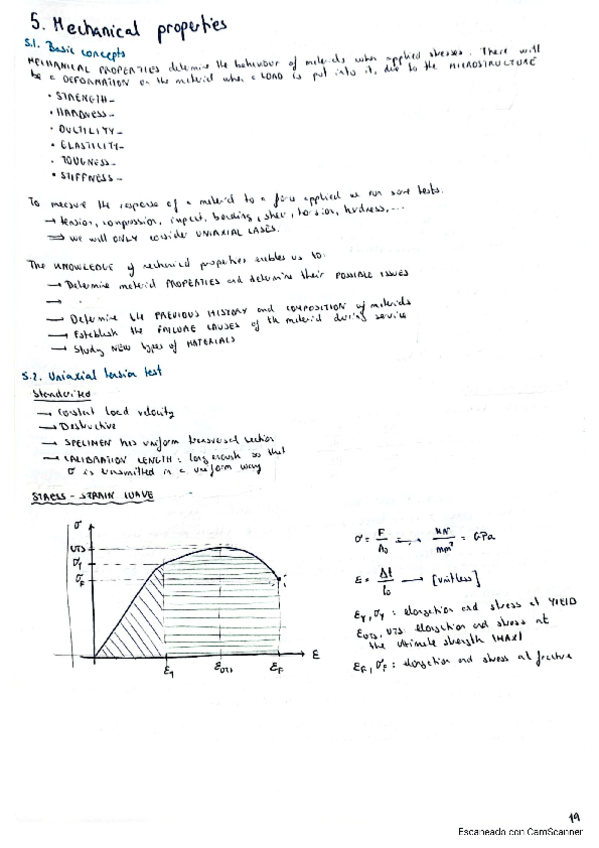 5. Mechanical properties
5.1. Basic concepts
MECHANICAL PROPERTIES determine the behaviour of materials when applied stresses. There will
be a DEFORMATION on the material when a LOAD is put into it, due to the MICROSTRUCTURE
• STRENGTH-
• HARDNESS-
• DUCTILITY-
• ELASTICITY-
• TOUGNESS-
• STIFFNESS-
To measure the response of a material to a force applied we run some tests.
→ tension, compression, impact, bending, shear, torsion, hardness,...
⇒ we will ONLY consider UNIAXIAL CASES.
The KNOWLEDGE of mechanical properties enables us to:
→ Determine material PROPERTIES and determine their POSSIBLE ISSUES
→ .
→ Determine the PREVIOUS HISTORY and COMPOSITION of materials
→ Establish the FAILURE CAUSES of the material during service
→ Study NEW types of MATERIALS
5.2. Uniaxial tension test
Standarized
→ Constant load velocity
→ Destructive
→ SPECIMEN has uniform transversal section
→ CALIBRATION LENGTH: long enough so that
σ is transmitted in a uniform way
STRESS - STRAIN CURVE
σ
UTS
σy
σF
εy
εUTS
εF
ε
σ = F/A₀ → /mm² = GPa
ε = Δl/l₀ → [unitless]
εy, σy: elongation and stress at YIELD
εUTS, UTS: elongation and stress at
the ultimate strength (MAX)
εF, σF: elongation and stress at fracture
19
Escaneado con CamScanner